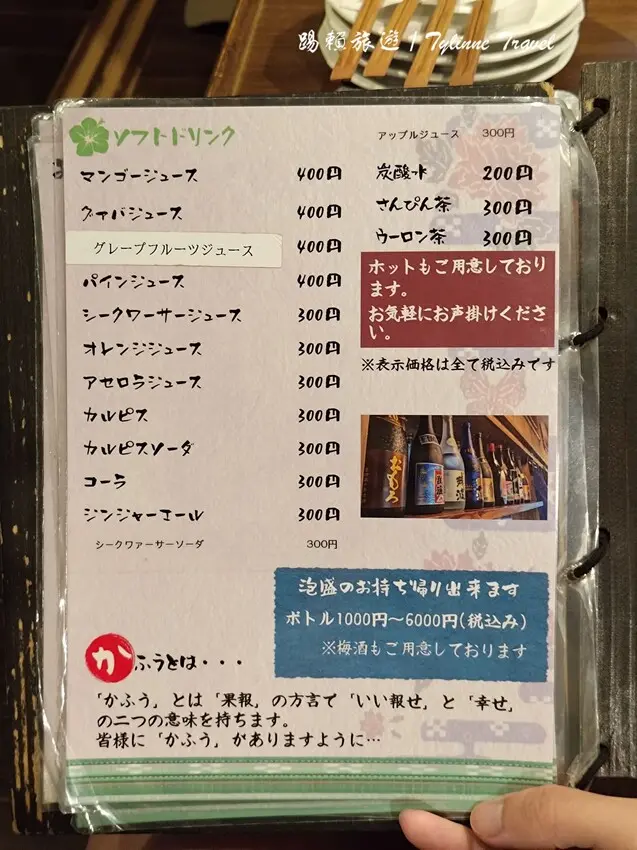 踢賴旅遊 | Tylinne Travel
ソフトドリンク
マンゴージュース 400円
グァバジュース 400円
グレープフルーツジュース 400円
パインジュース 400円
シークワーサージュース 300円
オレンジジュース 300円
アセロラジュース 300円
カルピス 300円
カルピスソーダ 300円
コーラ 300円
ジンジャーエール 300円
シークヮーサーソーダ 300円
アップルジュース 300円
炭酸水 200円
さんぴん茶 300円
ウーロン茶 300円
ホットもご用意しており
ます。
お気軽にお声掛けくださ
い。
※表示価格は全て税込みです
おもろ
泡盛のお持ち帰り出来ます
ボトル1000円～6000円(税込み)
※梅酒もご用意しております
かふうとは・・・
「かふう」とは「果報」の方言で「いい報せ」と「幸せ」
の二つの意味を持ちます。
皆様に「かふう」がありますように…